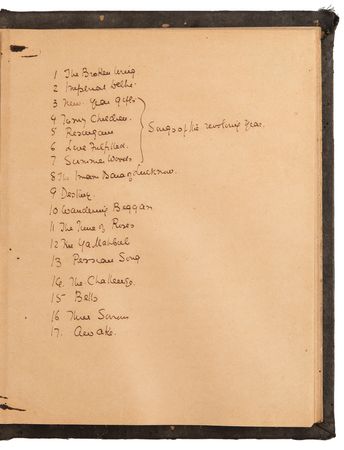 1 The Broken Wing
2 Imperial Delhi
3 New Year gifts
4 Town Children
5 Resurgam
6 Love Fulfilled.
7 Summer Woods
Songs of the revolving year.
8 The Imam Bara of Lucknow.
9 Destiny
10 Wandering Beggars
11 The Time of Roses
12 Ya Mahbub
13 Persian Song
14. The Challenge.
15 Bells
16 Three Sorrows
17. Awake.